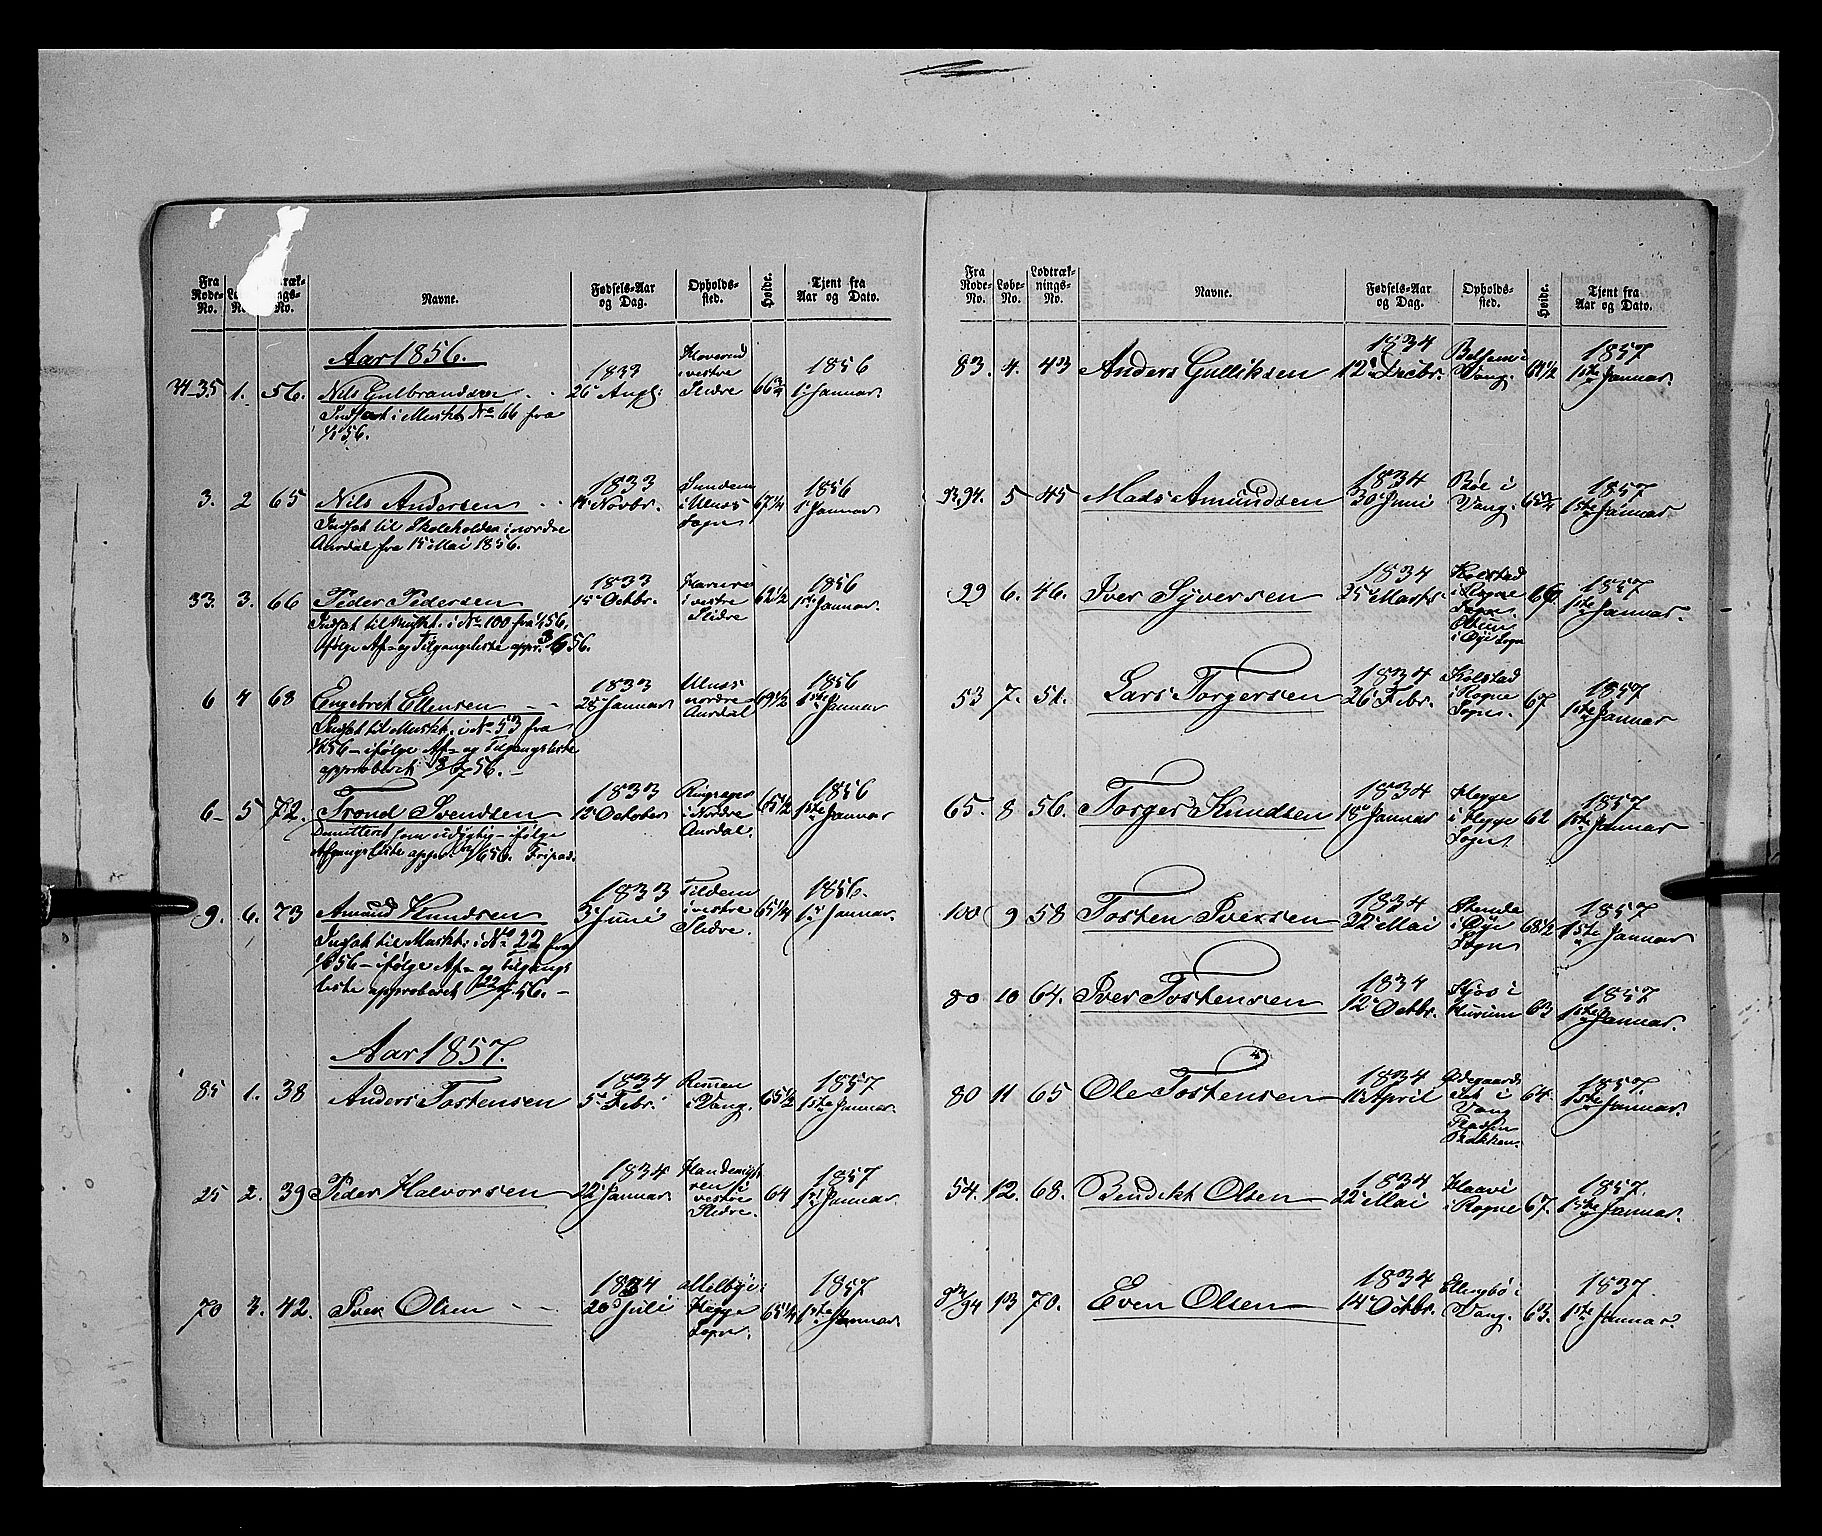 Fra Rode-No.
Navne.
Fødsels-Aar og Dag.
Opholds-sted.
Høide.
Tjent fra Aar og Dato.
Aar 1856.
34-35 1. 56. Nils Gulbrandsen 1833 26 Augl: vestre Slidre 66 3/4 1856 1 Januar.
Indsat i Muskt. No 66 fra
1/1 56.
3. 2 65 Nils Andersen 1833 Novbr. i Ulnæs Sogn 67 1/4 1856 1 Januar
Indsat til Skoleholder i nordre
Aurdal fra 15 Mai 1856.
33. 3. 66 Peder Pedersen 1833 15 Octbr. i vestre Slidre 62 1/2 1856 1ste Januar.
Indsat til Muskt. i No 100 fra 1/1 56.
ifølge Af- og Tilgangsliste appr. 3/6 56.
6 4 68 Engebret Ellensen 1833 28 Januar Ulnæs nordre Aurdal 69 1/2 1856 1ste Januar
Indsat til Muskt. i No 53 fra
1/1 56 – ifølge Af- og Tilgangsliste
approberet 56. –
6- 5 72. Trond Svendsen 1833 12 October i Nordre Aurdal. 65 1/2 1856 1ste Januar
Demitteret som udygtig – ifølge
Afgangsliste appr. 56. Fripas.
9. 6. 73 Amund Knudsen 1833 3 Juni i vestre Slidre. 65 1/4 1856. 1 Januar.
Indsat til Muskt. i No 22 fra
1/1 56 – ifølge Af- og Tilgangs
liste approberet 56. –
Aar 1857.
85 1. 38 Anders Tostensen 1834 5 Febr. i Vang. 65 1/2 1857 1ste Januar.
25 2. 39 Peder Halvorsen 1834 22 Januar vestre Slidre. 64 1857 1 Januar
70 3. 42. Iver Olsen 1834 20 Juli Melbye i Hegge Sogn. 65 1/4 1857 1ste Januar
Fra Rode-No.
Løbe-No.
Lodtræk-nings-No.
Navne.
Fødsels-Aar og Dag.
Opholds-sted.
Høide.
Tjent fra Aar og Dato.
83. 4. 43 Anders Gulliksen 1834 12 Decbr. Vang. 1857 1ste Januar.
93.94. 5 45 Mads Amundsen 1834 30 Juni Bøe i Vang. 65 3/4 1857 1ste Januar
99 6. 46. Iver Syversen 1834 25 Marts Kolstad i Rogne Sogn. i Øye Sogn 66. 1857 1ste Januar.
53 7. 51. Lars Torgersen 1834 26 Febr. Kolstad i Rogne Sogn. 67 1857 1ste Januar
65. 8 56. Torger Knudsen 1834 18 Januar Hegge i Hegge Sogn 62 1857 1ste Januar
100 9 58 Tosten Iversen 1834 22 Mai i Øye Sogn 68 1/2 1857 1ste Januar
80 10 64. Iver Tostensen 1834 12 Octbr. i Hurum 63 1857 1ste Januar.
80 11 65 Ole Tostensen 1834 11 April Vang 64. 1857 1ste Januar.
54. 12. 68. Bendikt Olsen 1834 22 Mai i Rogne 67. 1857. 1ste Januar.
93/94 13 70. Even Olsen 1834 14 Octbr. Ellingbø i Vang. 63. 1837. 1ste Januar.